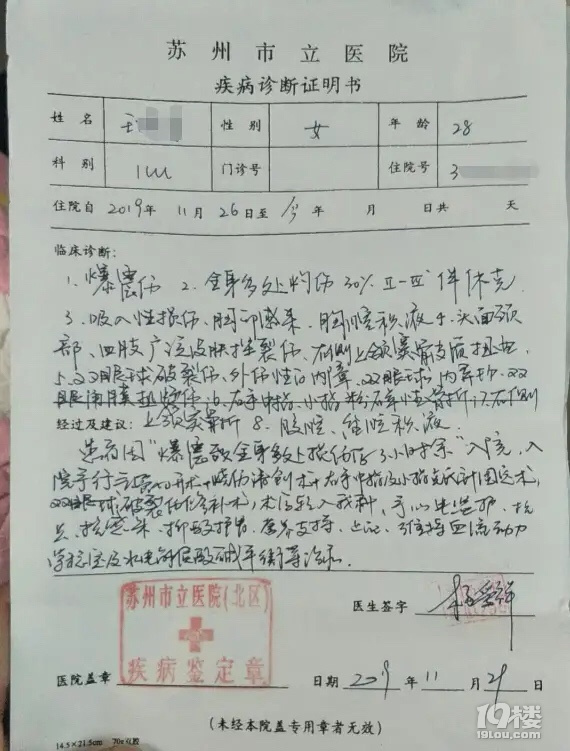 苏州市立医院
疾病诊断证明书
姓名 王 性别 女 年龄 28
科别 ICU 门诊号 住院号 3
住院自 2019年 11月 26日至 今年 月 日共 天
临床诊断:
1. 爆震伤 2. 全身多处灼伤 30% II-III° 伴休克
3. 吸入性损伤、胸部 胸腔积液 4. 头面颈
部、四肢广泛皮肤挫裂伤、右侧上颌窦
5. 双眼球破裂伤、外伤性白内障、双眼球内异物、双
眼 6. 右手中指、小指粉碎性骨折 7. 右侧
经过及建议: 上颌窦骨折 8. 腹腔、盆腔积液.
患者因“爆震致全身多处损伤后3小时余”入院, 入
院予行 术+烧伤清创术+右手中指及小指 术,
双眼球破裂伤修补术, 术后转入我科, 予以 监护、抗
炎、 营养支持、 血流动力
学 及水电解质酸碱平衡等治疗.
苏州市立医院(北区)
疾病鉴定章
医生签字
医院盖章 日期 2019年 11月 29日
(未经本院盖专用章者无效)
14.5×21.5cm 70g双胶
19楼
19lou.com